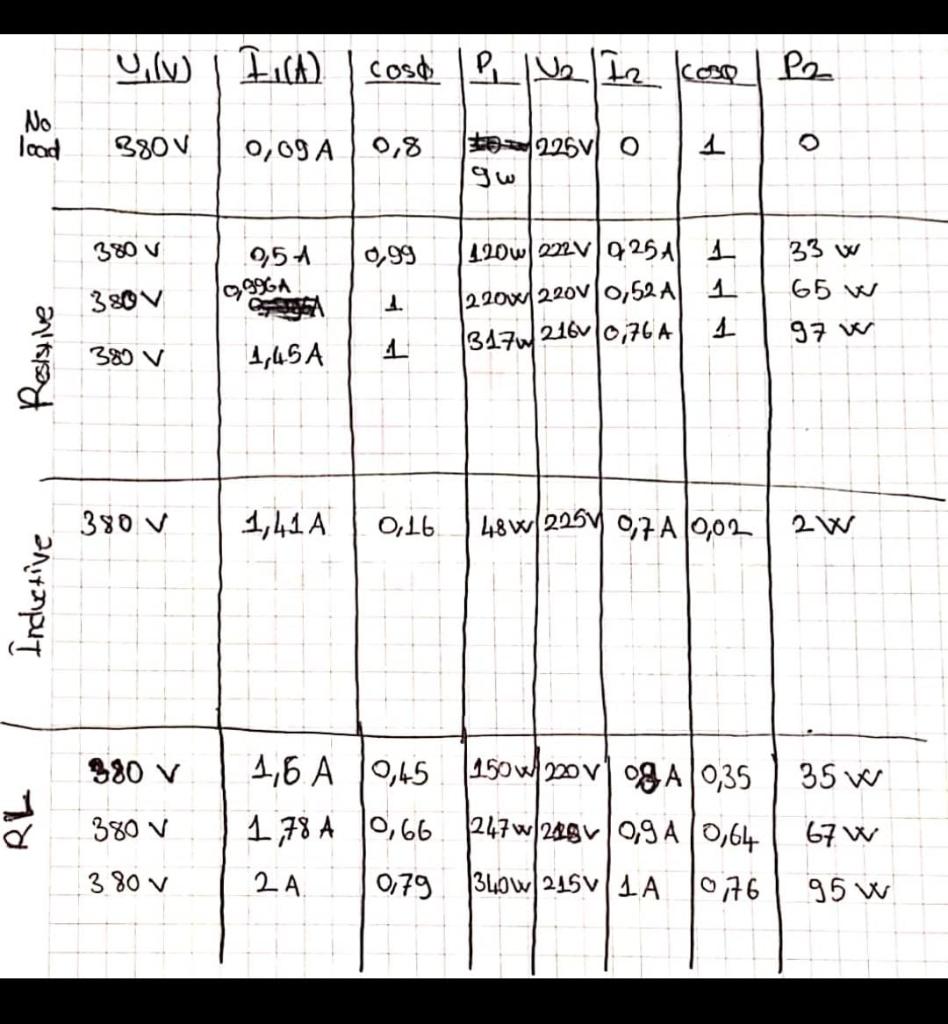 U₁(V) I₁(A) cosϕ P₁ U₂ I₂ cosφ P₂
No load 380V 0,09A 0,8 9w 225V 0 1 0
Resistive
380 V 0,5A 0,99 120w 222V 0,25A 1 33 w
380 V 0,996A 1 220w 220V 0,52A 1 65 w
380 V 1,45A 1 317w 216V 0,76A 1 97 w
Inductive
380 V 1,41A 0,16 48W 225V 0,7A 0,02 2W
RL
380 V A 0,45 150w 220V A 0,35 35 w
380 V 1,78 A 0,66 247w 0,9A 0,64 67 w
380 V 2A 0,79 340w 215V 1A 0,76 95 w